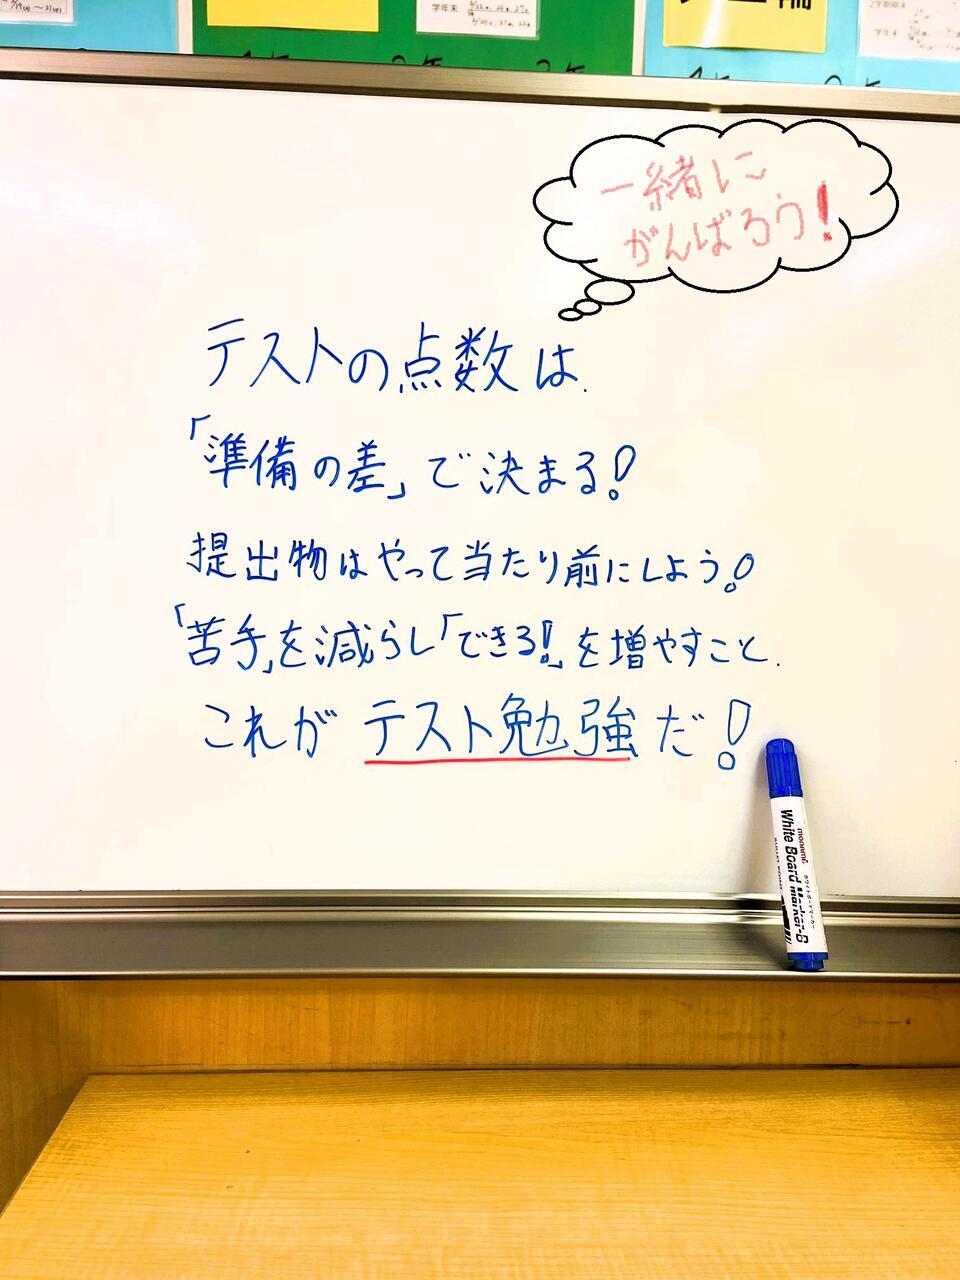 学年末
一緒に
がんばろう!
テストの点数は.
「準備の差」で決まる!
提出物はやって当たり前にしよう!
「苦手」を減らし「できる!」を増やすこと.
これがテスト勉強だ!
monami
ホワイトボードマーカー
White Board Marker-B